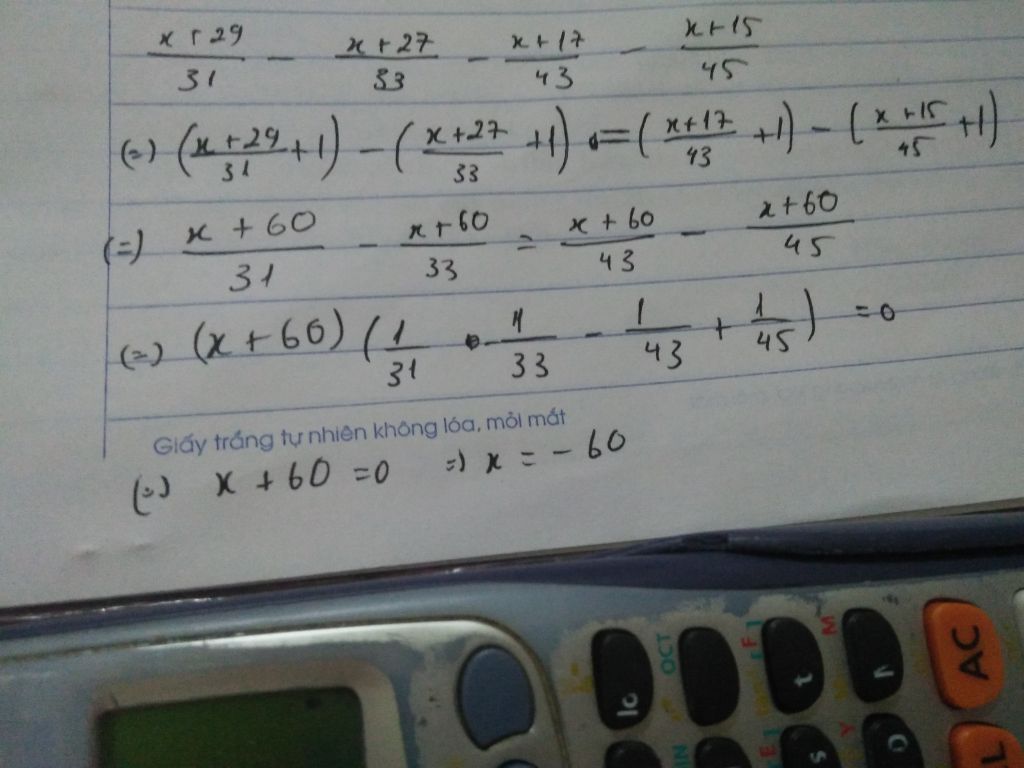 x+29/31 - x+27/33 - x+17/43 - x+15/45
(=) (x+29/31 +1) - (x+27/33 +1) = (x+17/43 +1) - (x+15/45 +1)
(=) x+60/31 - x+60/33 = x+60/43 - x+60/45
(=) (x+60) (1/31 - 1/33 - 1/43 + 1/45) = 0
Giấy trắng tự nhiên không lóa, mỏi mắt
(=) x+60 =0 =) x = -60
OCT [F] M
lc t AC